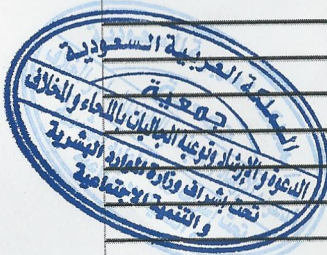 المملكة العربية السعودية
جمعية
الدعوة والإرشاد وتوعية الجاليات بالدعاء والخلائف
تحت إشراف وزارة الموارد البشرية
و التنمية الاجتماعية